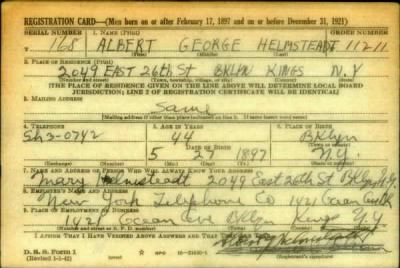 REGISTRATION CARD—(Men born on or after February 17, 1897 and on or before December 31, 1921)
SERIAL NUMBER 1. NAME (Print) ORDER NUMBER
168 ALBERT GEORGE HELMSTEADT 11211
(First) (Middle) (Last)
2. PLACE OF RESIDENCE (Print)
2049 EAST 26th ST BKLYN KINGS N.Y
(Number and street) (Town, township, village, or city) (County) (State)
[THE PLACE OF RESIDENCE GIVEN ON THE LINE ABOVE WILL DETERMINE LOCAL BOARD
JURISDICTION; LINE 2 OF REGISTRATION CERTIFICATE WILL BE IDENTICAL]
3. MAILING ADDRESS
Same
[Mailing address if other than place indicated on line 2. If same insert word same]
4. TELEPHONE 5. AGE IN YEARS 6. PLACE OF BIRTH
Sh3-0742 44 Bklyn
DATE OF BIRTH (Town or county)
5 27 1897 N.Y
(Exchange) (Number) (Mo.) (Day) (Yr.) (State or country)
7. NAME AND ADDRESS OF PERSON WHO WILL ALWAYS KNOW YOUR ADDRESS
Mary Helmsteadt 2049 East 26th St Bklyn N.Y.
8. EMPLOYER'S NAME AND ADDRESS
New York Telephone Co 1421 Ocean Ave Bk
9. PLACE OF EMPLOYMENT OR BUSINESS
1421 Ocean Ave Bklyn Kings N.Y
(Number and street or R. F. D. number) (Town) (County) (State)
I AFFIRM THAT I HAVE VERIFIED ABOVE ANSWERS AND THAT THEY ARE TRUE.
D. S. S. Form 1
(Revised 1-1-42)